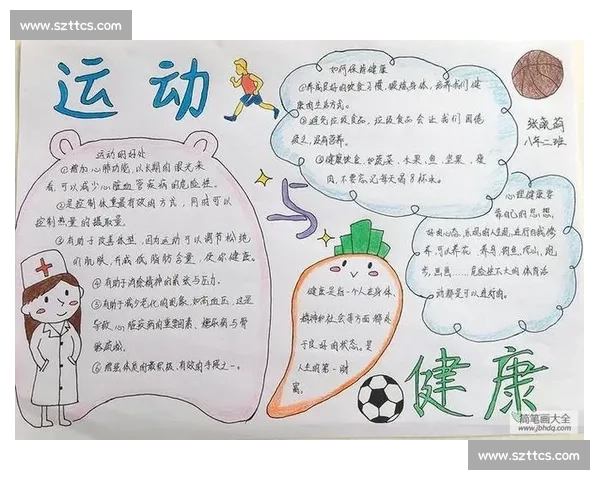 www.szttcs.com
运动
与
健康
张宸菡
八年二班
运动的好处
①增加心肺功能,以长期的眼光来
看,可以减少心脏血管疾病的危险性。
②是控制体重最有效的方式,同时可以
控制热量的摄取量。
③有助于改善体型,因为运动可以调节松纯
们肌肤,并成低脂肪含量,使你健康。
④有助于消除精神的紧张与压力。
⑤有助于减少老化的因素,如高血压,这是
导致心脏疾病的重要因素,糖尿病与骨
骼疏松。
⑥增强体质的最积极,有效的手段之一。
如何保持健康
①养成良好的饮食习惯,锻炼身体,培养我们健
康的生活方式。
②避免垃圾食品,垃圾食品会让我们困倦
疲乏,没有营养。
③健康饮食,如蔬菜、水果、鱼、坚果、瘦
肉,不要忘记每天喝8杯水。
心理健康要
靠自己的思想,
好的心态,乐观的人生观,进行自我修
养,可以养花、养鸟、钓鱼、爬山、跑
步、熊熊……危险性不大的体育活
动都是可以进行的。
健康是指一个人在身体、
精神和社会等方面都处
于良好的状态。是
人生的第一财
富。
简笔画大全
www.jbhdq.com
www.szttcs.com